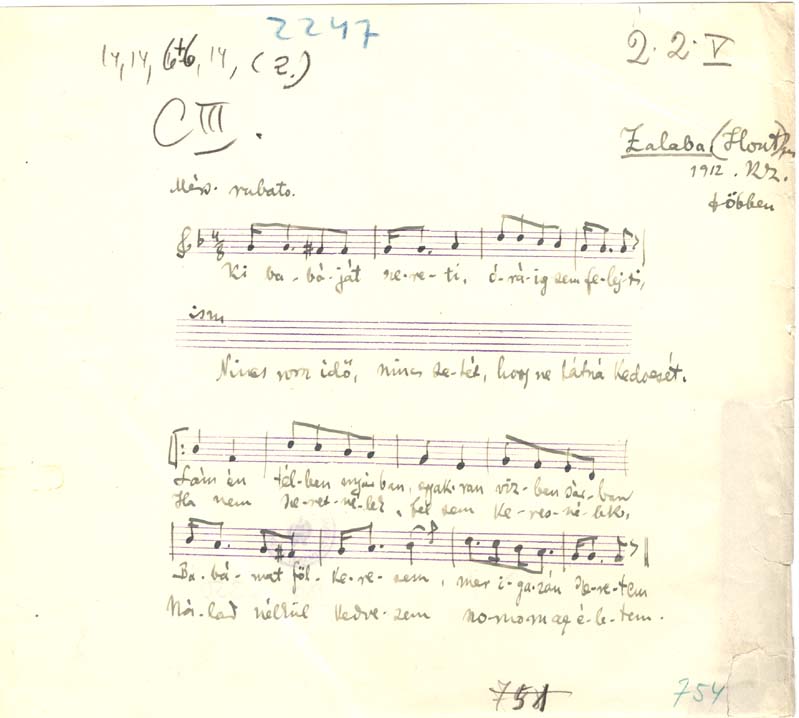 2247
14, 14, 6+6, 14, (Z.)
2. 2. V
C III.
Zalaba (Hont)
1912. Kz.
többen
Mérs. rubato.
4/8
Ki ba-bá-ját sze-re-ti, ó-rá-ig sem fe-lej-ti,
ism
Nincs rossz idő, nincs se-tét, hogy ne látná kedvesét.
Lám én tél-ben nyár-ban, gyak-ran víz-ben sár-ban
Ha nem sze-ret-né-lek, fel sem ke-res-né-lek,
Ba-bá-mat föl-ke-re-sem, mer i-ga-zán sze-re-tem
Nál-lad nélkül kedve-sem é-le-tem.
751
754